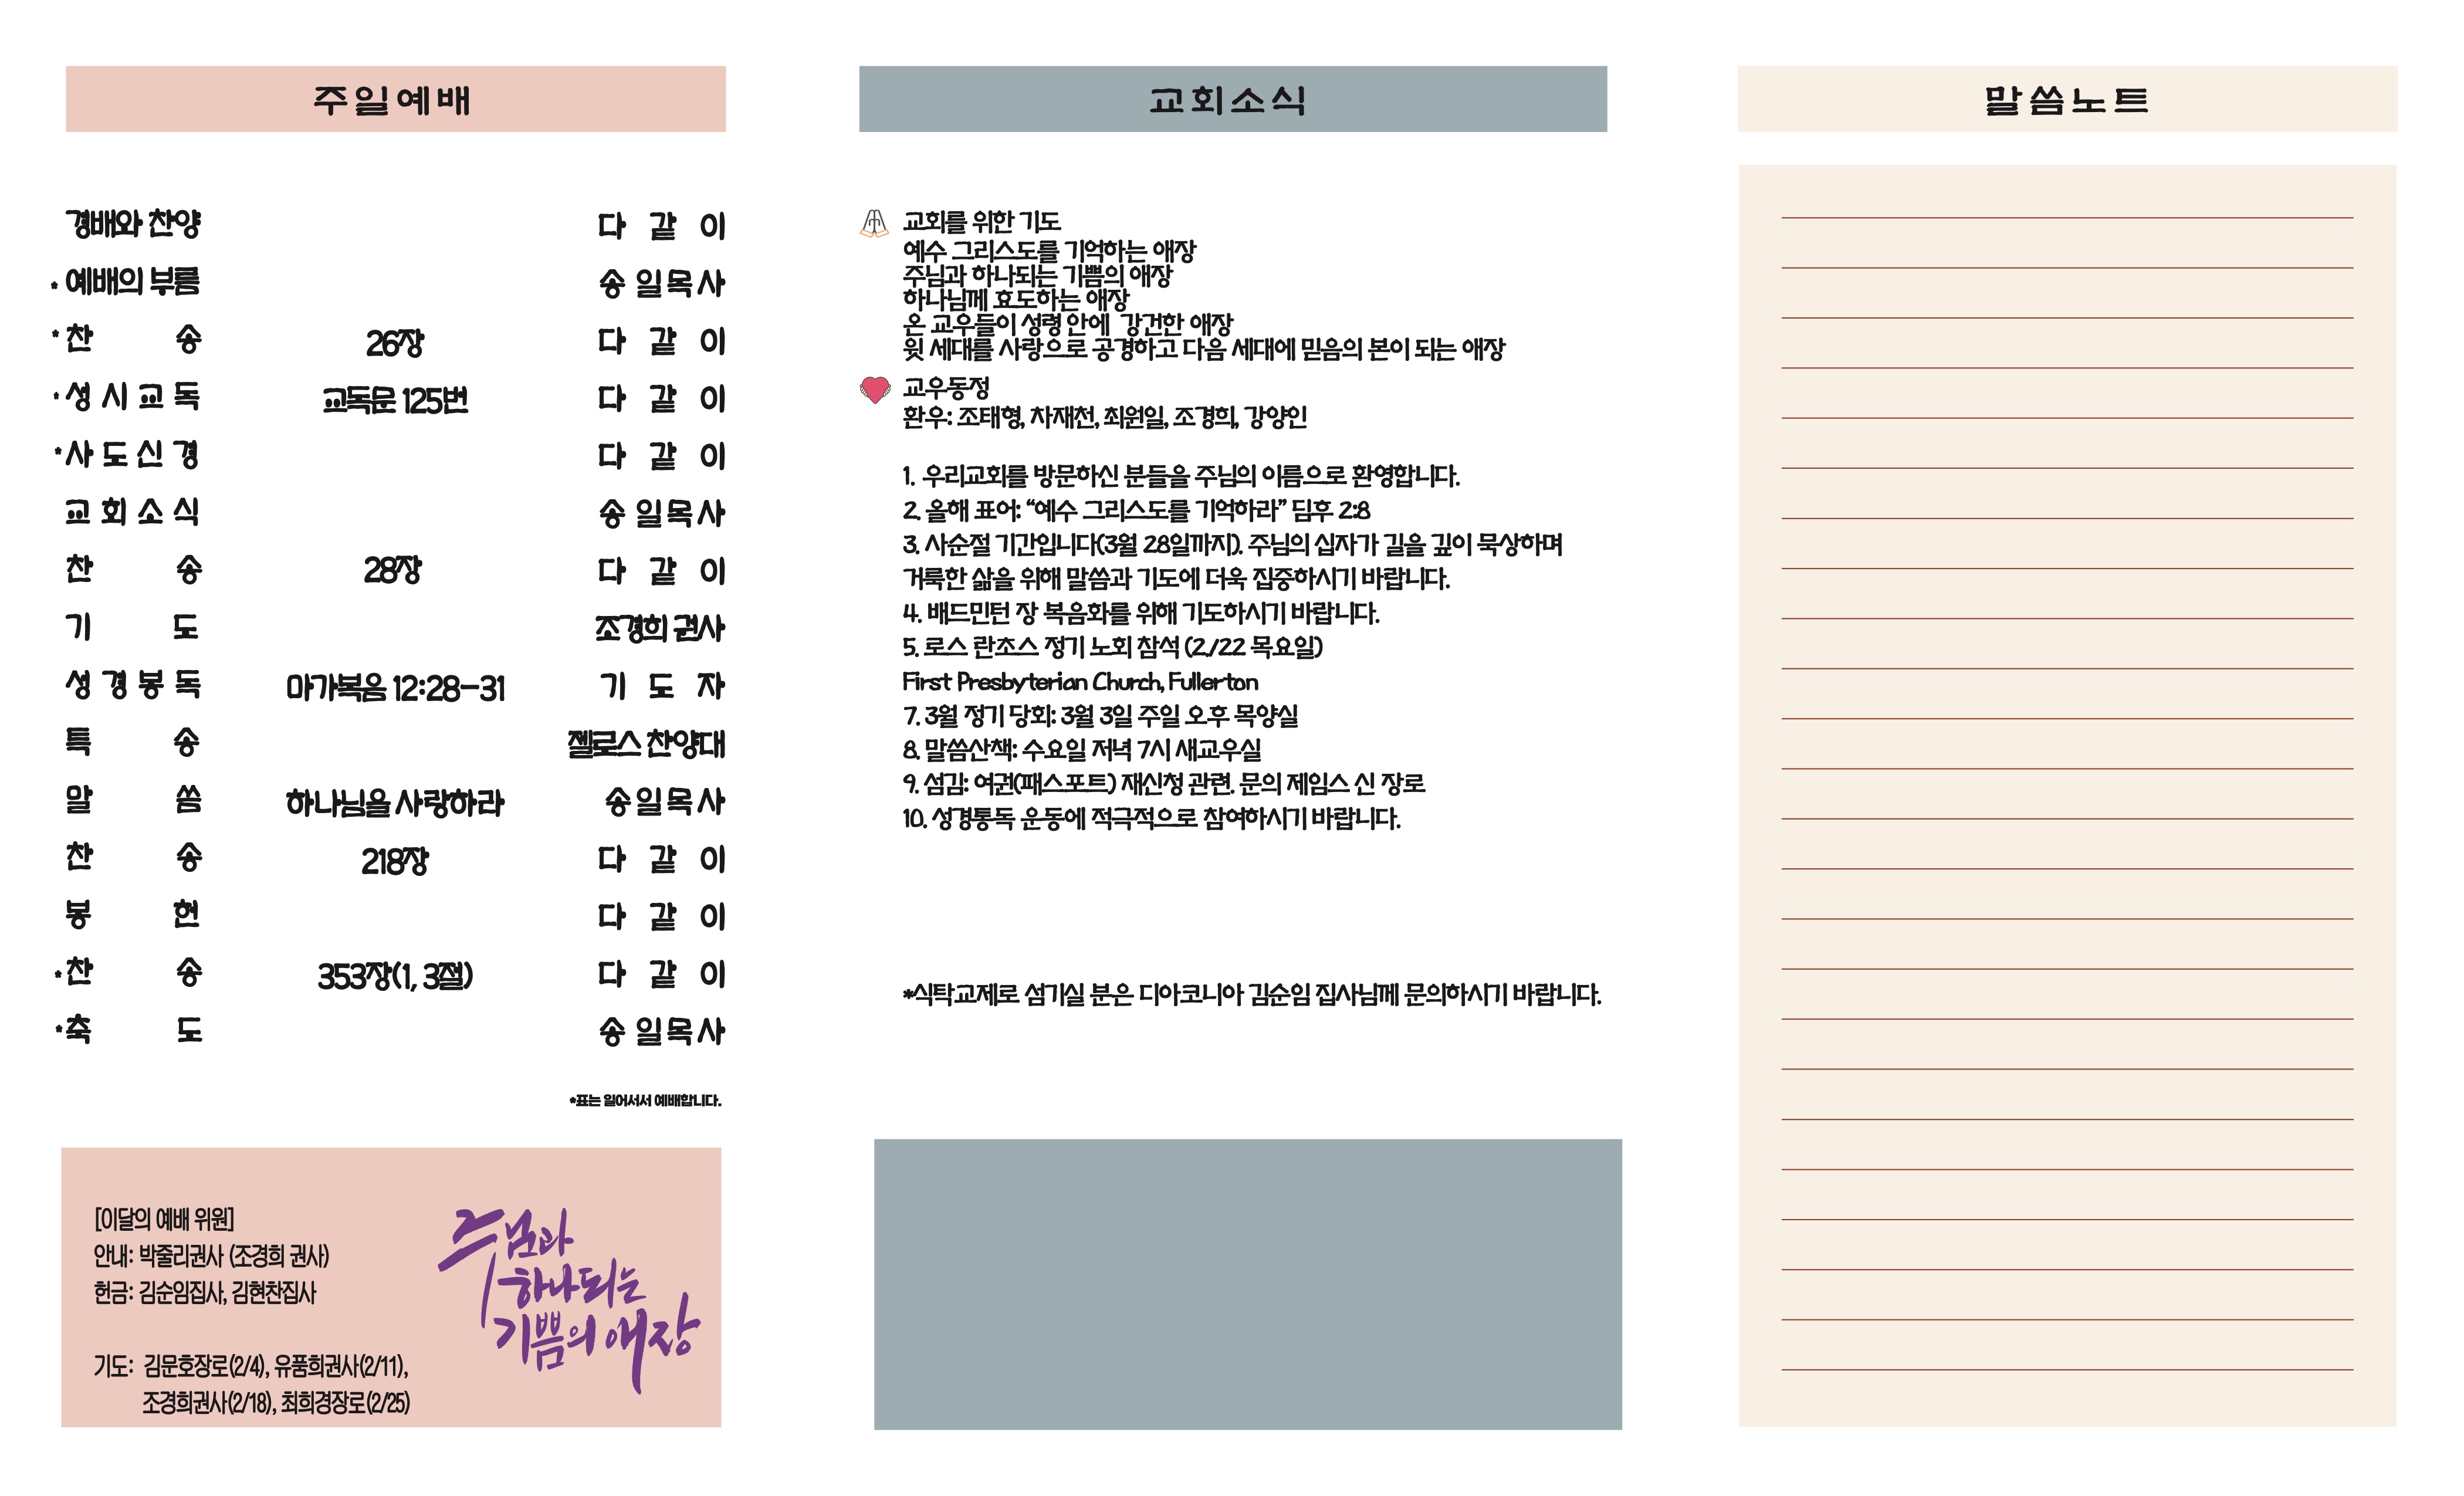 주일예배
경배와 찬양 다 같 이
* 예배의 부름 송 일 목 사
* 찬 송 26장 다 같 이
* 성 시 교 독 교독문 125번 다 같 이
* 사 도 신 경 다 같 이
교 회 소 식 송 일 목 사
찬 송 28장 다 같 이
기 도 조경희 권사
성 경 봉 독 마가복음 12:28-31 기 도 자
특 송 젤로스 찬양대
말 씀 하나님을 사랑하라 송 일 목 사
찬 송 218장 다 같 이
봉 헌 다 같 이
* 찬 송 353장(1, 3절) 다 같 이
* 축 도 송 일 목 사
*표는 일어서서 예배합니다.
[이달의 예배 위원]
안내: 박줄리권사 (조경희 권사)
헌금: 김순임집사, 김현찬집사
기도: 김문호장로(2/4), 유품희권사(2/11),
조경희권사(2/18), 최희경장로(2/25)
주님과
하나되는
기쁨의 애장
교회소식
교회를 위한 기도
예수 그리스도를 기억하는 애장
주님과 하나되는 기쁨의 애장
하나님께 효도하는 애장
온 교우들이 성령 안에 강건한 애장
윗 세대를 사랑으로 공경하고 다음 세대에 믿음의 본이 되는 애장
교우동정
환우: 조태형, 차재천, 최원일, 조경희, 강양인
1. 우리교회를 방문하신 분들을 주님의 이름으로 환영합니다.
2. 올해 표어: “예수 그리스도를 기억하라” 딤후 2:8
3. 사순절 기간입니다(3월 28일까지). 주님의 십자가 길을 깊이 묵상하며
거룩한 삶을 위해 말씀과 기도에 더욱 집중하시기 바랍니다.
4. 배드민턴 장 복음화를 위해 기도하시기 바랍니다.
5. 로스 란초스 정기 노회 참석 (2./22 목요일)
First Presbyterian Church, Fullerton
7. 3월 정기 당회: 3월 3일 주일 오후 목양실
8. 말씀산책: 수요일 저녁 7시 새교우실
9. 섬김: 여권(패스포트) 재신청 관련. 문의 제임스 신 장로
10. 성경통독 운동에 적극적으로 참여하시기 바랍니다.
*식탁교제로 섬기실 분은 디아코니아 김순임 집사님께 문의하시기 바랍니다.
말씀노트